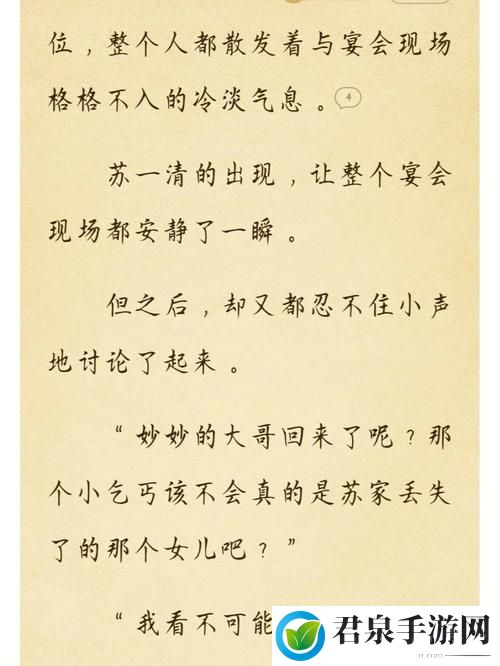 位，整个人都散发着与宴会现场
格格不入的冷淡气息。4
苏一清的出现，让整个宴会
现场都安静了一瞬。
但之后，却又都忍不住小声
地讨论了起来。
“妙妙的大哥回来了呢？那
个小乞丐该不会真的是苏家丢失
了的那个女儿吧？”
“我看不可能
君泉手游网